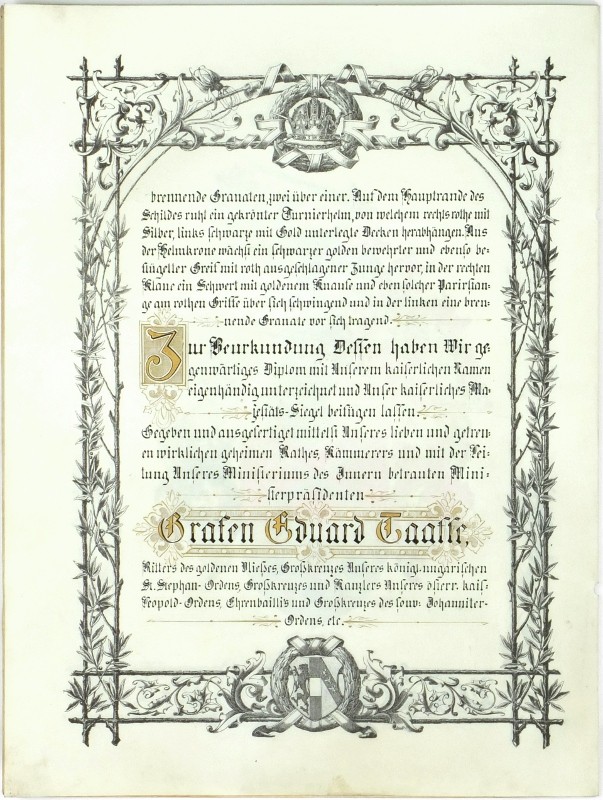 brennende Granaten, zwei über einer. Auf dem Hauptrande des
Schildes ruht ein gekrönter Turnierhelm, von welchem rechts rothe mit
Silber, links schwarze mit Gold unterlegte Decken herabhängen. Aus
der Helmkrone wächst ein schwarzer golden bewehrter und ebenso be-
flügelter Greif mit roth ausgeschlagener Zunge hervor, in der rechten
Klaue ein Schwert mit goldenem Knaufe und eben solcher Parirstan-
ge am rothen Griffe über sich schwingend und in der linken eine bren-
nende Granate vor sich tragend.
Zur Beurkundung Dessen haben Wir ge-
genwärtiges Diplom mit Unserem kaiserlichen Namen
eigenhändig unterzeichnet und Unser kaiserliches Ma-
jestäts-Siegel beifügen lassen.
Gegeben und ausgefertiget mittelst Unseres lieben und getreu-
en wirklichen geheimen Rathes, Kämmerers und mit der Lei-
tung Unseres Ministeriums des Innern betrauten Mini-
sterpräsidenten
Grafen Eduard Taaffe,
Ritters des goldenen Vließes, Großkreuzes Unseres königl. ungarischen
St. Stephan-Ordens, Großkreuzes und Kanzlers Unseres österr. kais.
Leopold-Ordens, Ehrenbailli's und Großkreuzes des souv: Johanniter-
Ordens, etc.